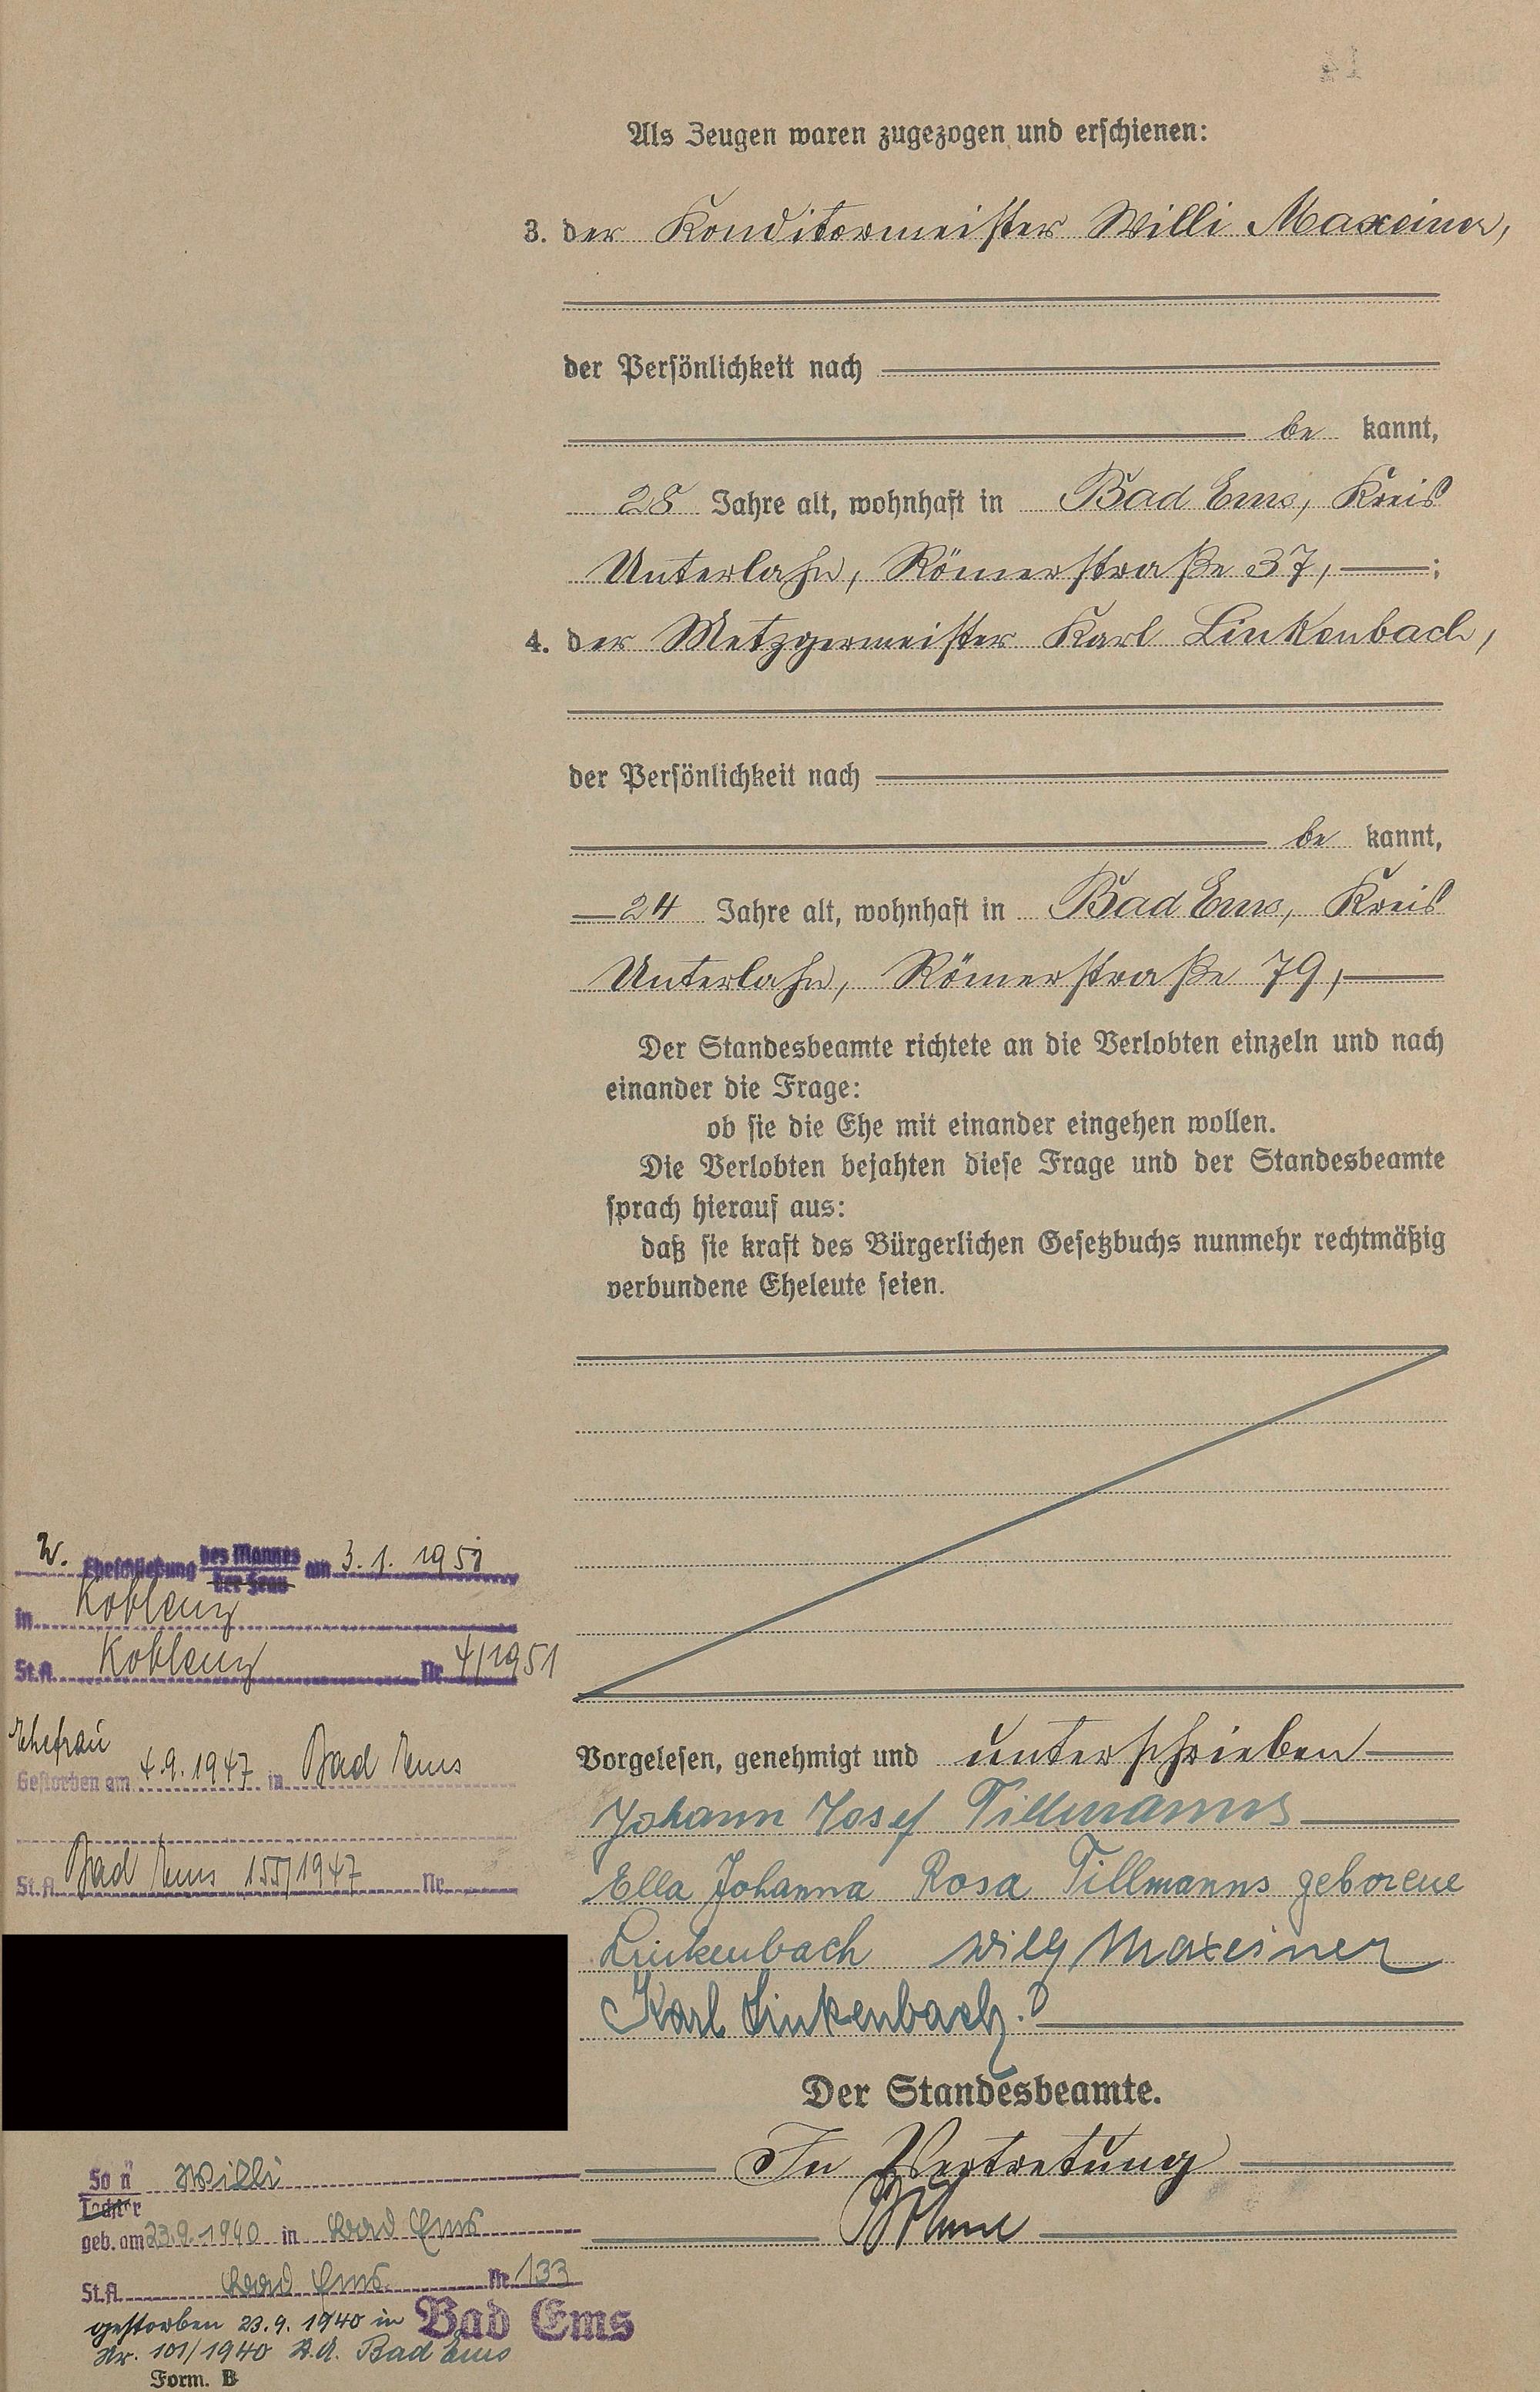 Als Zeugen waren zugezogen und erschienen:
3. der Konditormeister Willi Maxeiner,
der Persönlichkeit nach
be kannt,
28 Jahre alt, wohnhaft in Bad Ems, Kreis
Unterlahn, Römerstraße 37, ;
4. der Metzgermeister Karl Linkenbach,
der Persönlichkeit nach
be kannt,
24 Jahre alt, wohnhaft in Bad Ems, Kreis
Unterlahn, Römerstraße 79,
Der Standesbeamte richtete an die Verlobten einzeln und nach
einander die Frage:
ob sie die Ehe mit einander eingehen wollen.
Die Verlobten bejahten diese Frage und der Standesbeamte
sprach hierauf aus:
daß sie kraft des Bürgerlichen Gesetzbuchs nunmehr rechtmäßig
verbundene Eheleute seien.
Vorgelesen, genehmigt und unterschrieben
Johann Josef Tillmanns
Ella Johanna Rosa Tillmanns geborene
Linkenbach Willy Maxeiner
Karl Linkenbach.
Der Standesbeamte.
In Vertretung
2. Eheschließung des Mannes der Frau am 3.1.1951
in Koblenz
St.A. Koblenz Nr. 4/1951
Ehefrau
Gestorben am 4.9.1947 in Bad Ems
St.A. Bad Ems 155/1947 Nr.
Sohn Willi
Tochter
geb. am 23.9.1940 in Bad Ems
St.A. Bad Ems Nr. 133
gestorben 23.9.1940 in Bad Ems
Nr. 101/1940 St.A. Bad Ems
Form. B